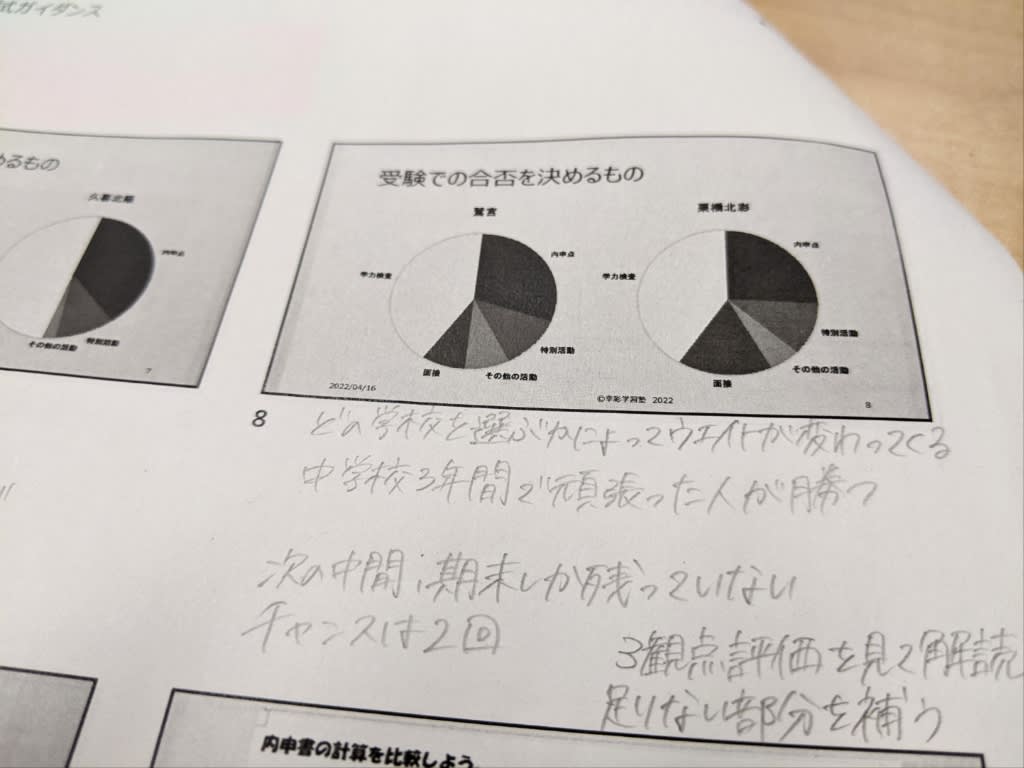 式ガイダンス
めるもの
内申点
特別活動
その他の活動
7
受験での合否を決めるもの
鷲宮
内申点
学力検査
特別活動
その他の活動
面接
栗橋北彩
内申点
学力検査
特別活動
その他の活動
面接
2022/04/16
©幸彩学習塾 2022
8
8
どの学校を選ぶかによってウエイトが変わってくる
中学校3年間で頑張った人が勝つ
次の中間、期末しか残っていない
チャンスは2回
3観点評価を見て解読
足りない部分を補う
内申書の計算を比較しよう。